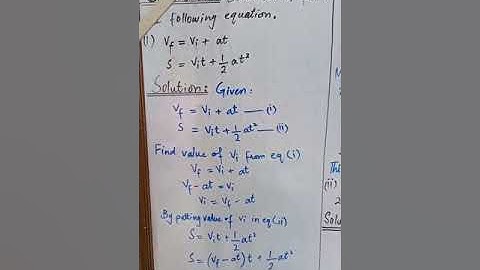 following equation.
(i) Vf = Vi + at
S = Vit + 1/2 at²
Solution: Given:
Vf = Vi + at — (i)
S = Vit + 1/2 at² — (ii)
Find value of Vi from eq (i)
Vf = Vi + at
Vf - at = Vi
Vi = Vf - at
By putting value of Vi in eq (ii)
S = Vit + 1/2 at²
S = (Vf - at) t + 1/2 at²
(ii)